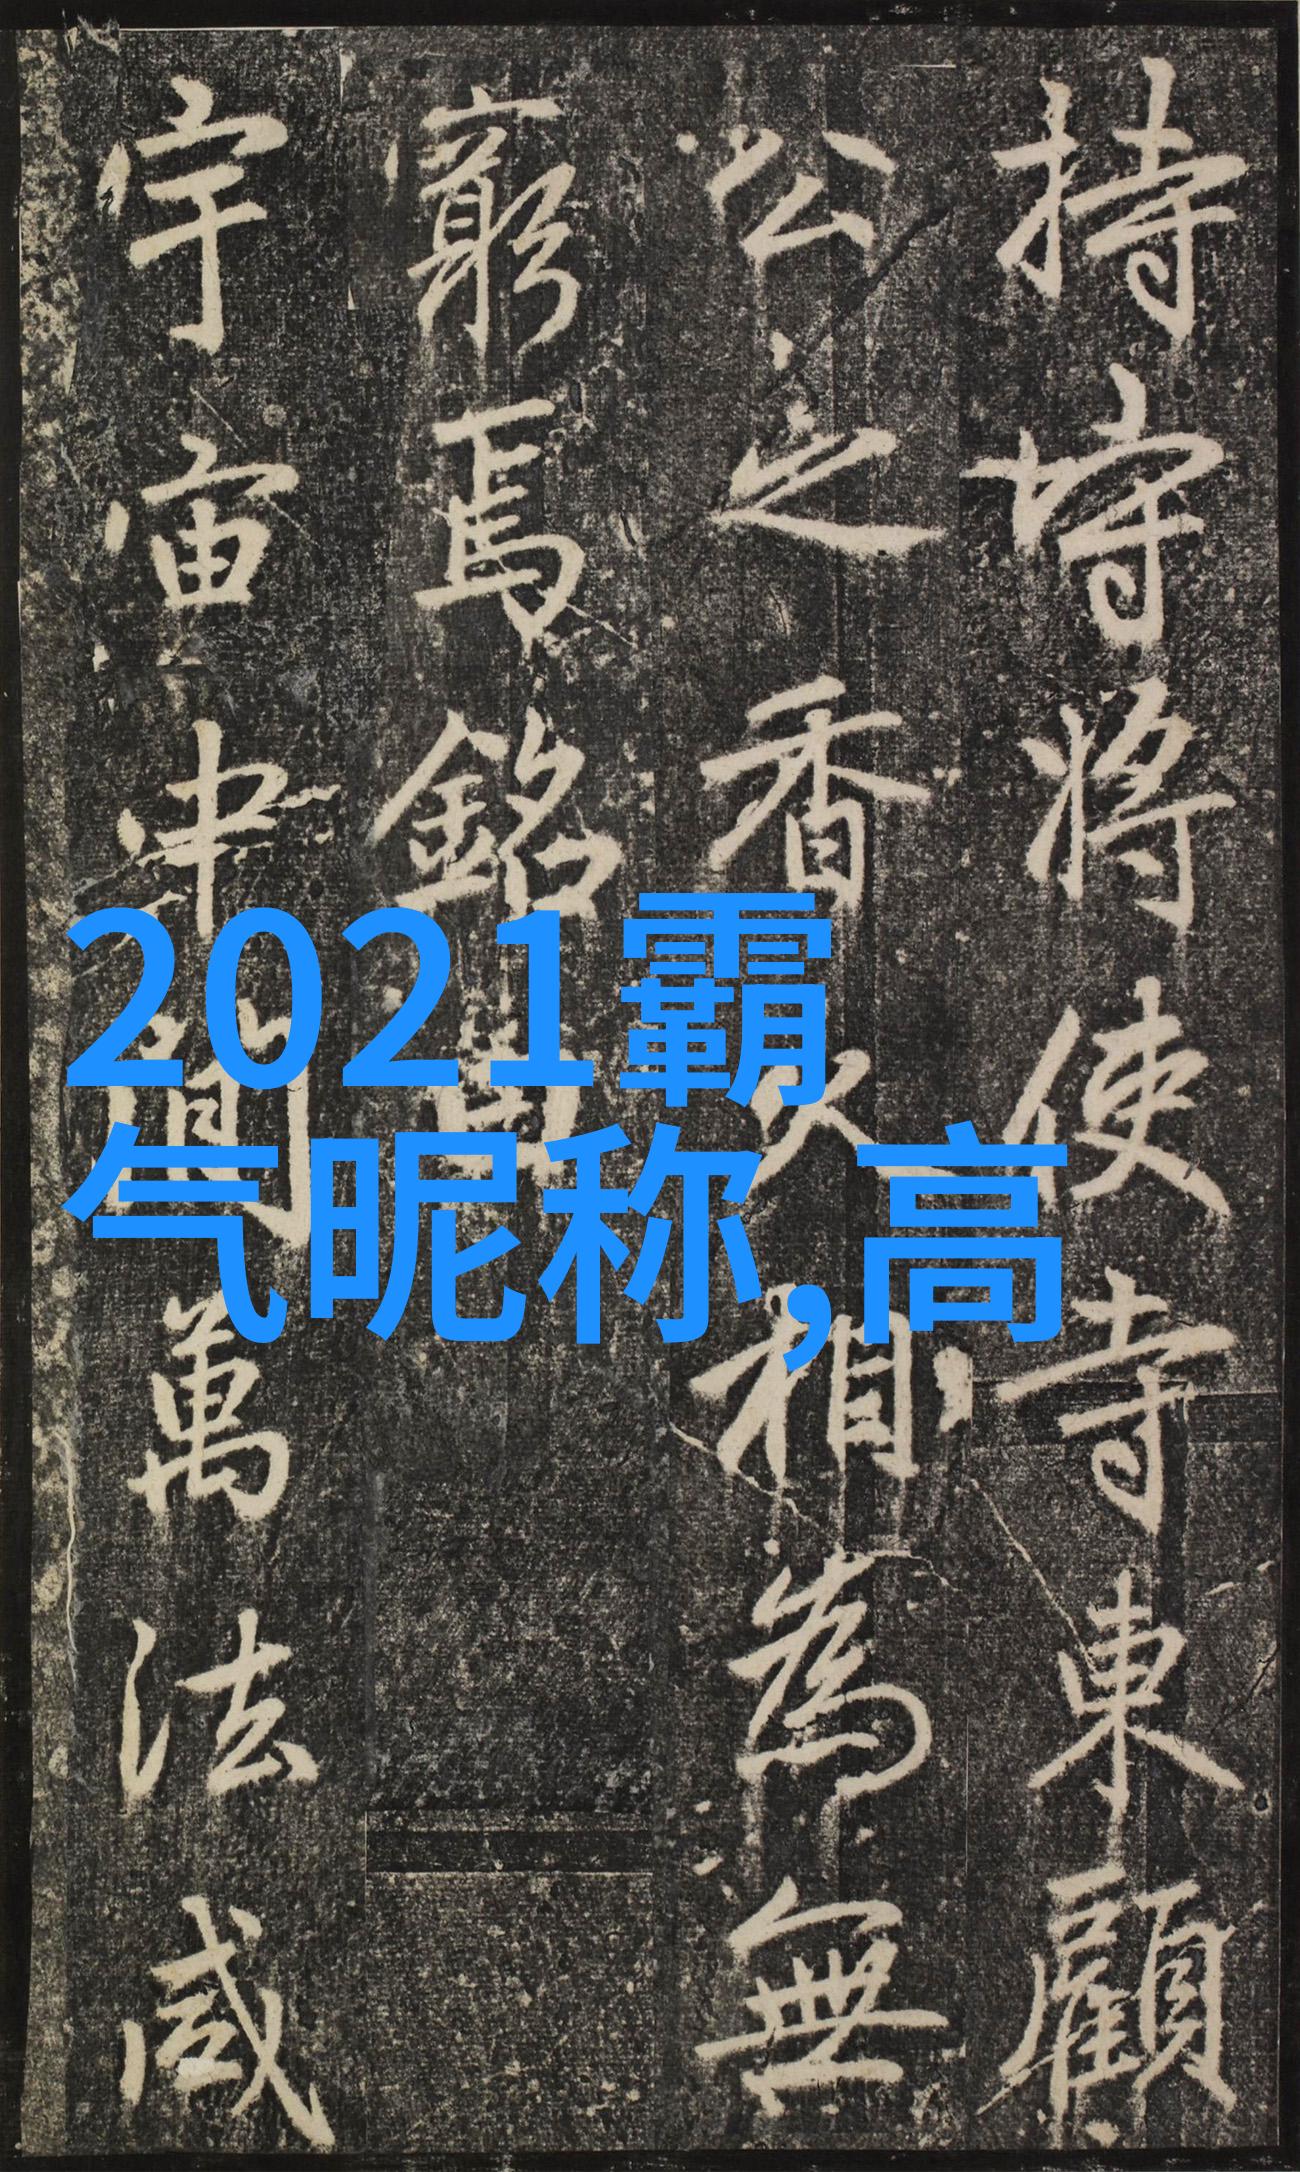 持將使寺東顧
公之香火相為無
窮焉銘
宇宙中間萬法咸
2021霸
气昵称,高